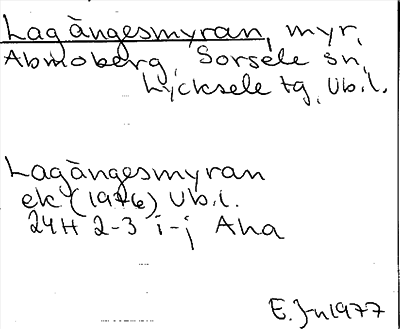 Lagångesmyran, myr,
Abmoberg, Sorsele sn,
Lycksele tg, Vb.l.
Lagångesmyran
ek (1976) Vb.l.
24H 2-3 i-j Aha
E. Jn 1977